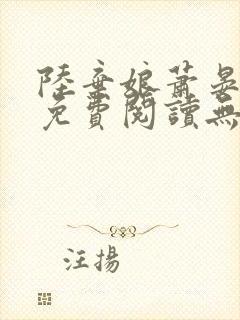 陸棄娘蕭晏
免費閱讀無
汪揚